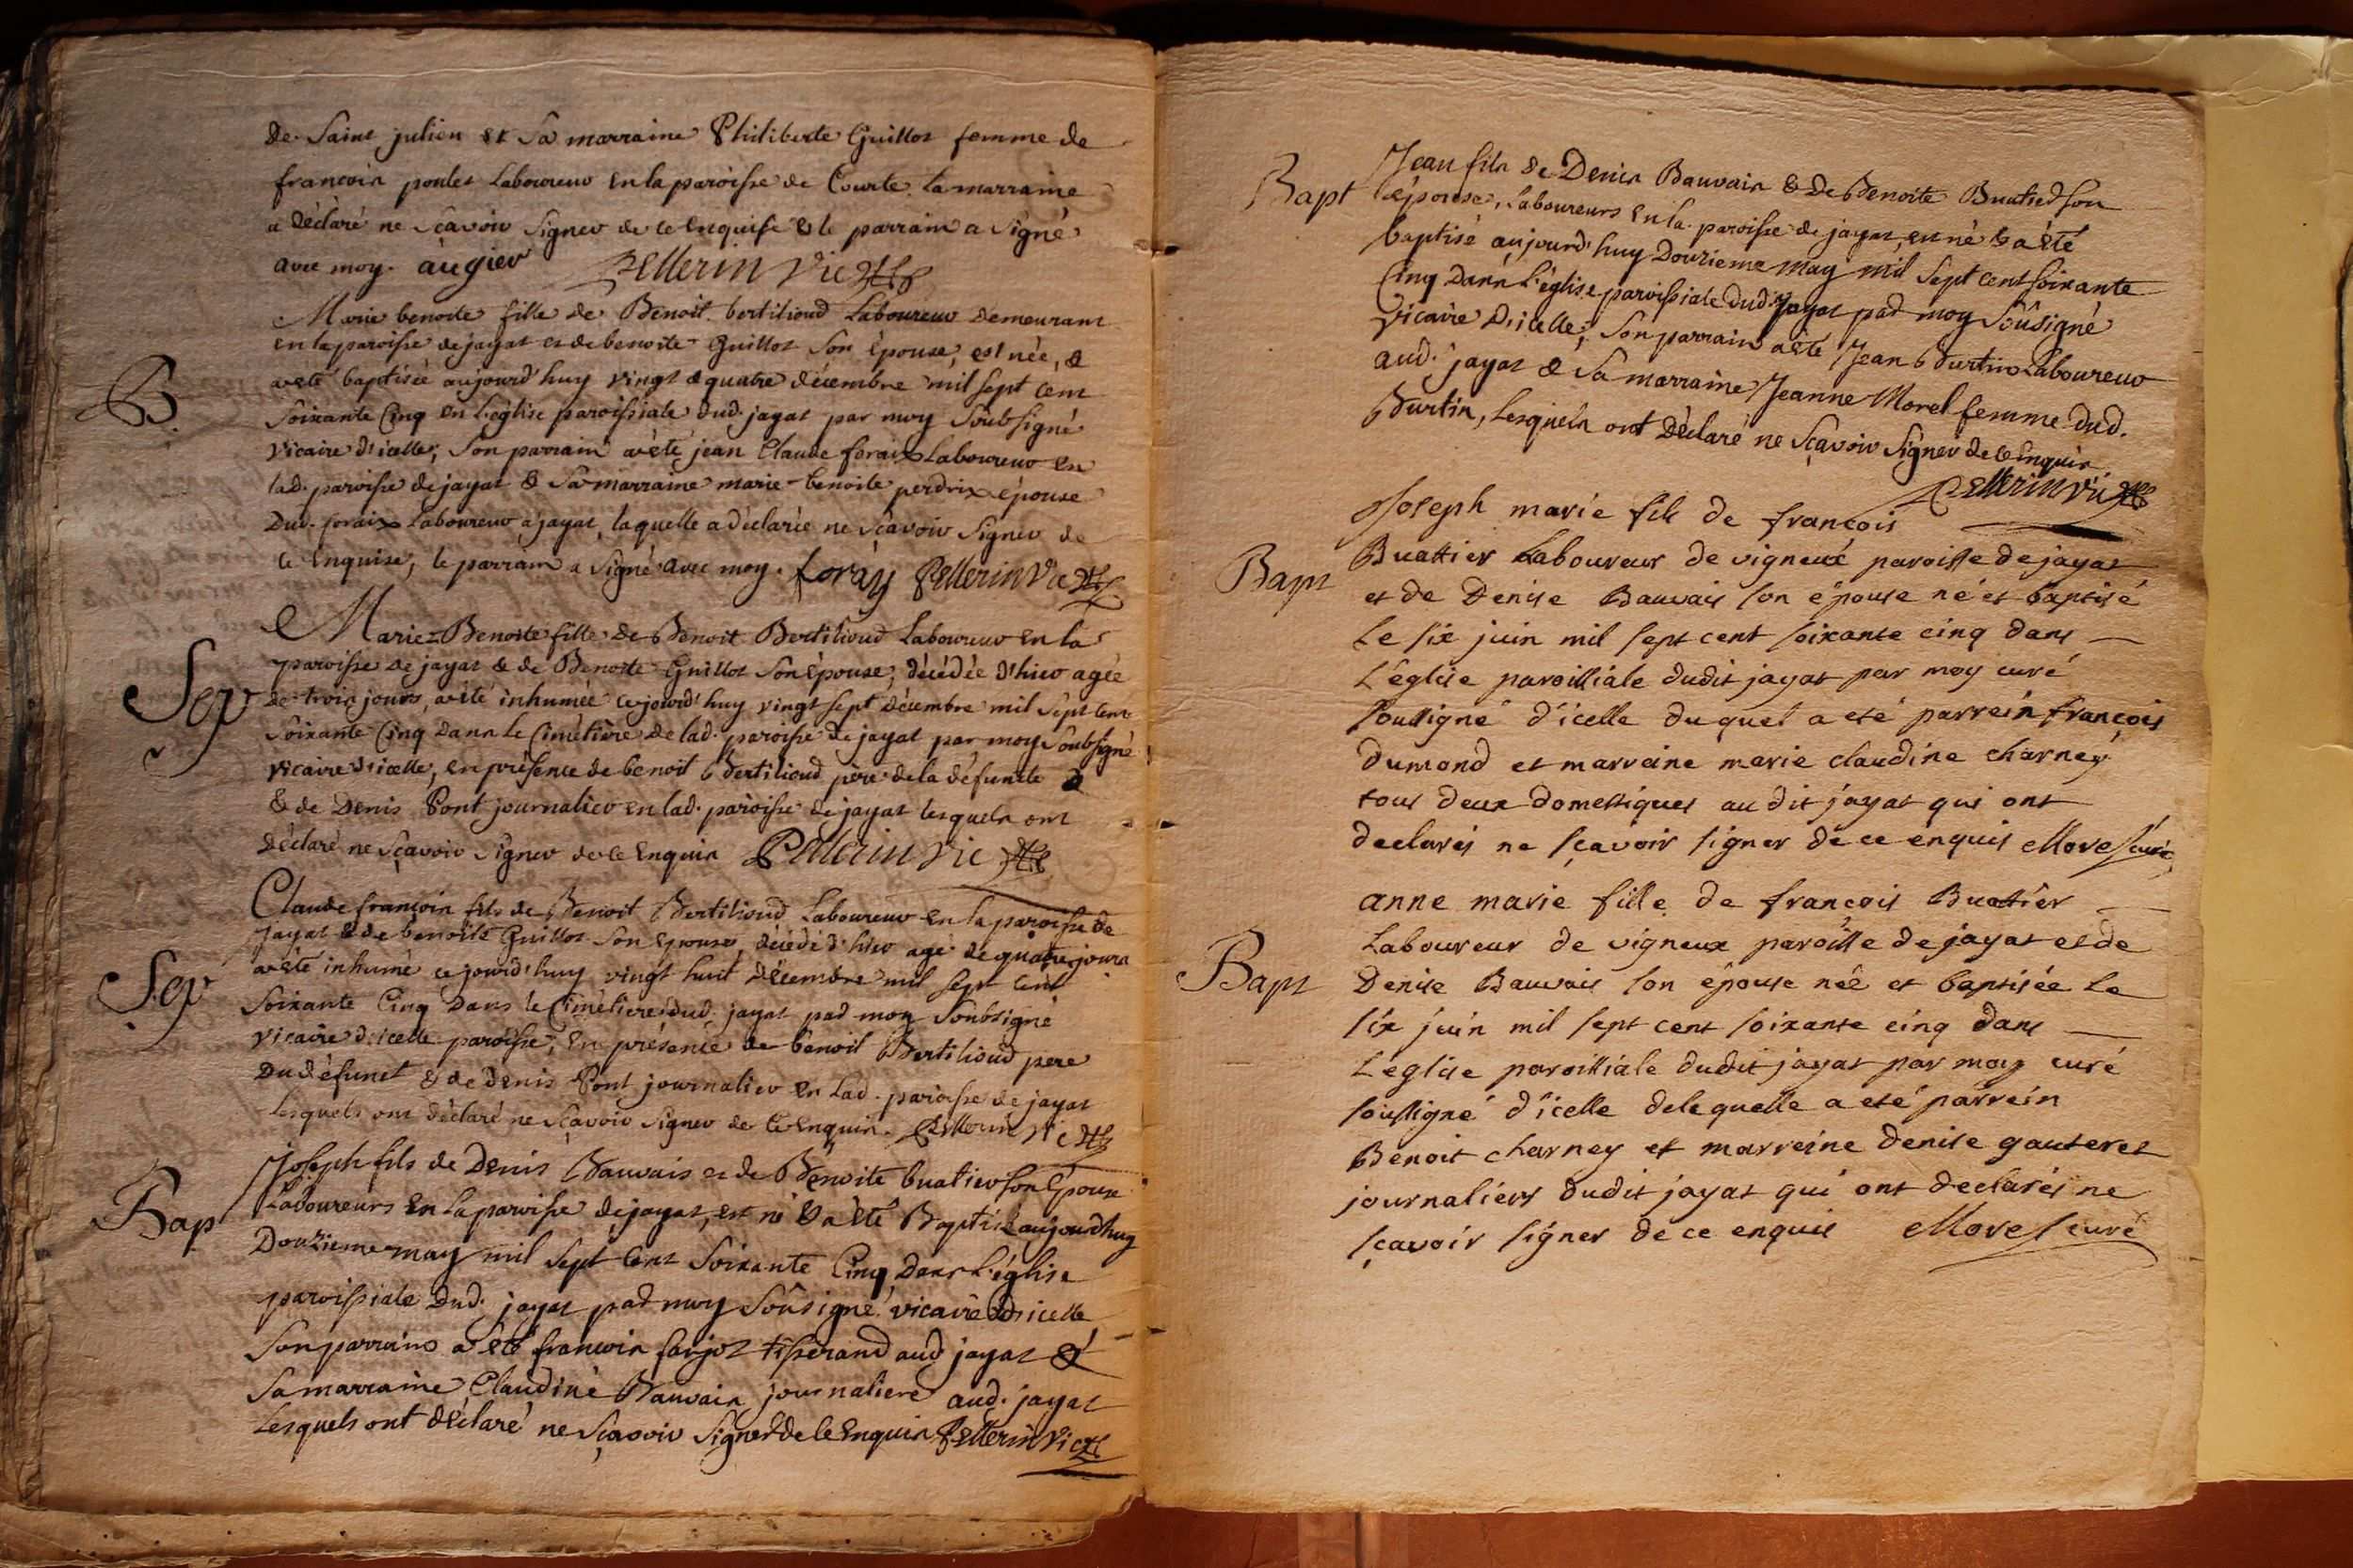 de Saint julien et Sa marraine Philiberte Guillot femme de
francois poulet Laboureur en la paroisse de Courte. la marraine
a déclaré ne sçavoir signer de ce enquise & le parrain a signé
avec moy. augier Pellerin Vic
Marie benoite fille de Benoit bertilioud Laboureur demeurant
en la paroisse de jayat et de benoite Guillot Son épouse, est née, &
a eté baptisée aujourd'huy vingt & quatre décembre mil sept cent
Soixante Cinq en L'église paroissiale dud. jayat par moy Soubsigné
B
vicaire d'icelle, Son parrain a eté jean Claude foraix Laboureur en
lad. paroisse de jayat & Sa marraine marie-benoite perdrix épouse
Dud. foraix Laboureur a jayat, laquelle a déclarée ne sçavoir signer de
ce Enquise, le parrain a signé avec moy. foray Pellerin Vic
Marie=Benoite fille de Benoit Bertilioud Laboureur en la
paroisse de jayat & de Benoite Guillot Son épouse, décédée d'hier agée
Sep
de trois jours, a eté inhumée ce jourd'huy vingt sept décembre mil sept cent
Soixante Cinq dans Le Cimetière de lad. paroisse de jayat par moy Soubsigné
vicaire d'icelle, en présence de benoit Bertilioud père de la défuncte
& de Denis Pont journalier en lad. paroisse de jayat lesquels ont
déclaré ne sçavoir signer de ce Enquis Pellerin Vic
Claude françois fils de Benoit Bertilioud Laboureur en la paroisse de
jayat & de benoite Guillot Son épouse, décédé d'hier agé de quatre jours
Sep
a eté inhumé ce jourd'huy vingt huit décembre mil sept cent
Soixante Cinq Dans le Cimetiere dud. jayat par moy Soubsigné
vicaire d'icelle paroisse, En présence de benoit Bertilioud pere
Du défunct & de Denis Pont journalier en Lad. paroisse de jayat
lesquels ont déclaré ne sçavoir signer de ce enquis. Pellerin Vic
Joseph fils de Denis Bauvais et de Benoite buatier son Epouse
Bap
Laboureurs en La paroisse de jayat, est né & a eté Baptisé aujourdhuy
Douzieme may mil Sept Cent Soixante Cinq Dans L'église
paroissiale Dud. jayat par moy Soûsigné vicaire d'icelle
Son parrain a eté francois farjot tisserand aud. jayat &
Sa marraine Claudine Bauvais journaliere aud. jayat
Lesquels ont déclaré ne Sçavoir Signer de ce Enquis Pellerin Vic
Bapt
Jean fils de Denis Bauvais & de Benoite Buatier son
épouse, Laboureurs en la paroisse de jayat, est né & a eté
baptisé aujourd'huy Douzieme may mil Sept cent soixante
Cinq Dans L'église paroissiale dud. jayat par moy Soûsigné
vicaire D'icelle, Son parrain a eté Jean Burtin Laboureur
aud. jayat & Sa marraine Jeanne Morel femme dud.
Burtin, Lesquels ont déclaré ne Sçavoir Signer de ce Enquis.
Pellerin Vic
Joseph marie fils de françois
Bapt
Buattier Laboureur de vigneux paroisse de jayat
et de Denise Bauvais son épouse né et baptisé
Le six juin mil sept cent soixante cinq dans
L'église paroissiale dudit jayat par moy curé
soussigné d'icelle duquel a eté parrein françois
dumond et marreine marie claudine charney
tous deux domestiques audit jayat qui ont
declarés ne sçavoir signer de ce enquis Morel curé
anne marie fille de françois Buattier
Laboureur de vigneux paroisse de jayat et de
Bapt
Denise Bauvais son épouse née et baptisée Le
six juin mil sept cent soixante cinq dans
L'église paroissiale dudit jayat par moy curé
soussigné d'icelle de lequelle a eté parrein
Benoit charney et marreine denise gauteret
journaliers dudit jayat qui ont declarés ne
sçavoir signer de ce enquis Morel curé